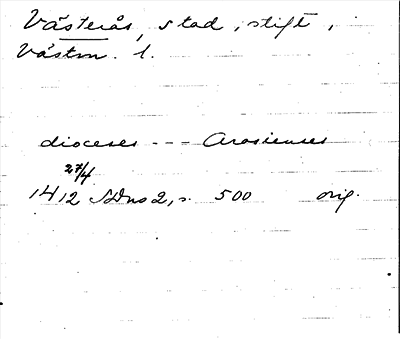 Västerås, stad, stift,
Västm. l.
dioceses --- Arosienses
27/4
1412 SDns 2, s. 500 orig.